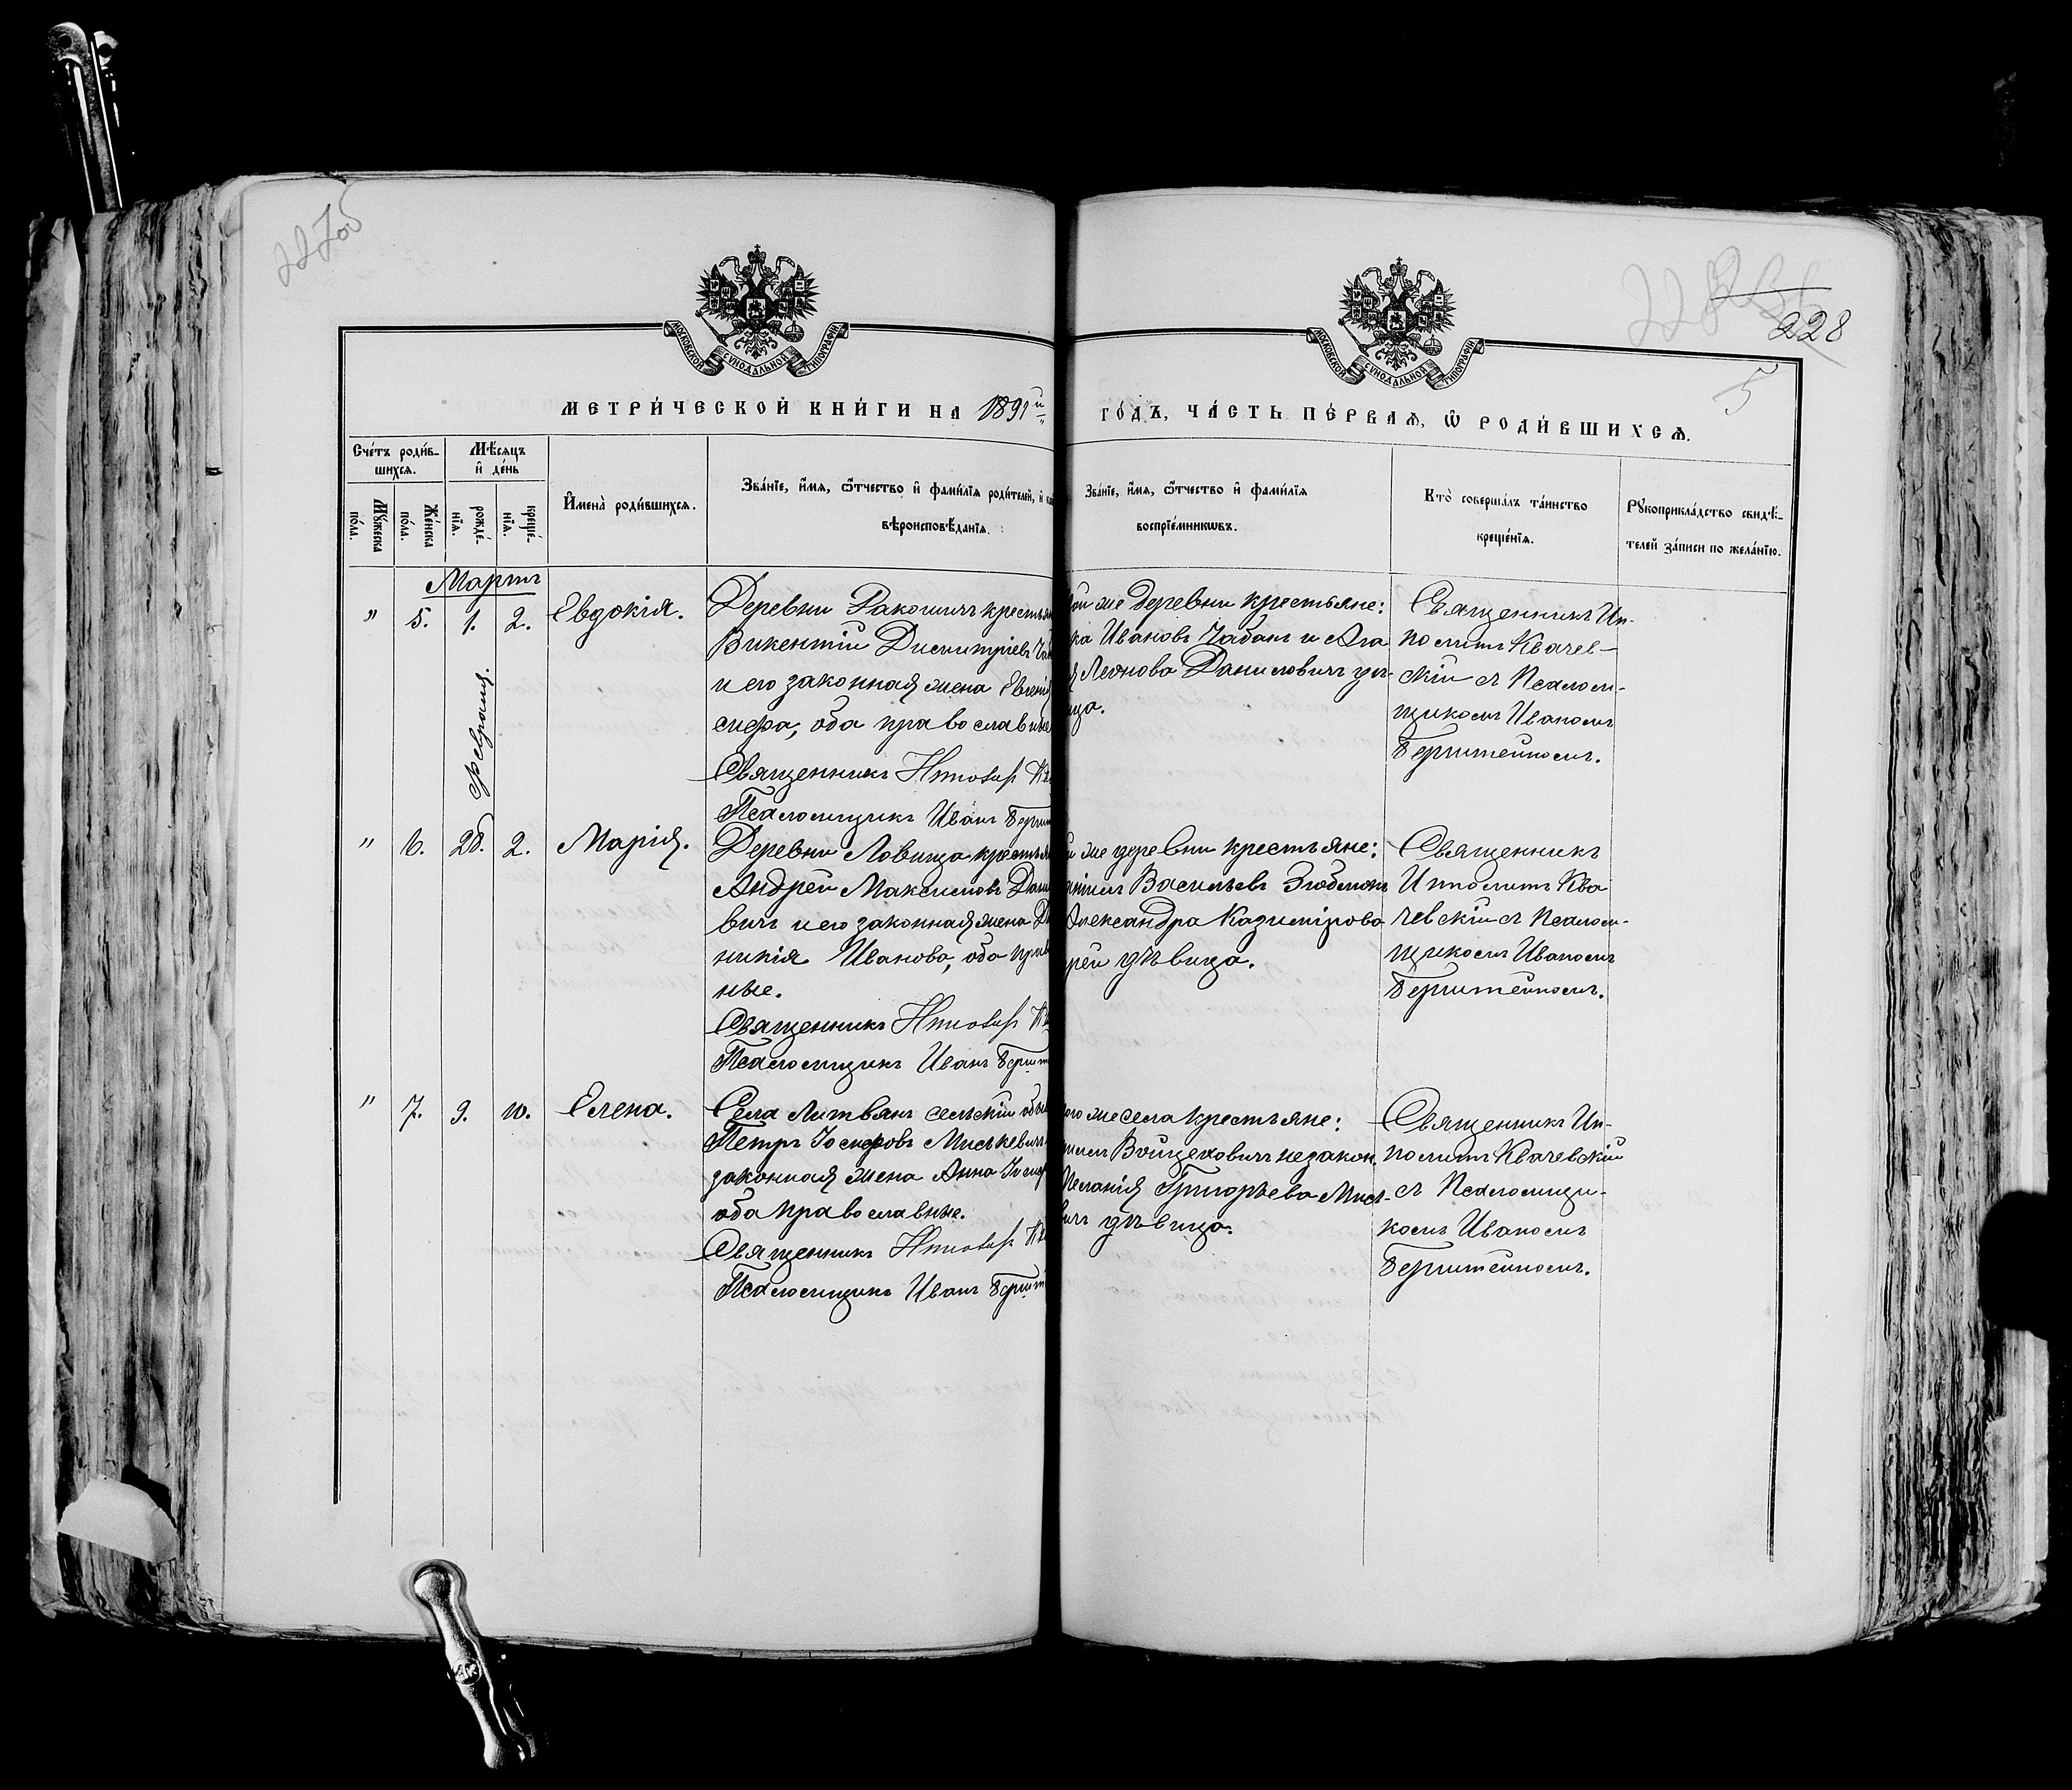 227об
228
228
5
МОСКОВСКОЙ СѴНОДАЛЬНОЙ ТИПОГРАФІИ
МОСКОВСКОЙ СѴНОДАЛЬНОЙ ТИПОГРАФІИ
МЕТРИ́ЧЕСКОЙ КНИ́ГИ НА 1891й ГО́ДЪ, ЧА́СТЬ ПЕ́РВАѦ, Ѡ РОДИ́ВШИХСѦ.
Сче́тъ роди́в-
шихся.
Мꙋ́жеска
по́ла.
Же́нска
по́ла.
Мѣ́сяцъ
и҆ де́нь
рожде́-
нїя.
креще́-
нїя.
И҆мена̀ роди́вшихся.
Зва́нїе, и҆́мя, ѻ҆́тчество и҆ фами́лїя роди́телей, и҆
вѣроисповѣ́данїя.
Зва́нїе, и҆́мя, ѻ҆́тчество и҆ фами́лїя
воспрїе́мникѡвъ.
Кто̀ соверша́лъ та́инство
креще́нїя.
Рꙋкоприкла́дство свидѣ́-
телей за́писи по жела́нїю.
Мартъ
" 5. 1. 2. Евдокія.
Деревни Ракошичъ крестьян
Викентій Димитріевъ Чаб
и его законная жена Евгенія
сифа, оба православные
Священникъ Ипполитъ Ква
Псаломщикъ Иванъ Берит
ой же деревни крестьяне:
ка Ивановъ Чабанъ и Ага
я Леонова Даниловичъ дѣ-
ица.
Священникъ Ип-
политъ Квачев-
скій съ Псалом-
щикомъ Иваномъ
" 6. 28. 2. Марія.
Февраля
Деревни Ловища крестьян
Андрей Максимовъ Дани
вичъ и его законная жена До
никія Иванова, оба прав
ные.
Священникъ Ипполитъ Кв
Псаломщикъ Иванъ
й же деревни крестьяне:
Васильевъ
Александра Казимірова
рей дѣвица.
Священникъ
Ипполитъ Ква
чевскій съ Псалом-
щикомъ Иваномъ
" 7. 9. 10. Елена.
Села Литвянъ сельскій обы
Петръ Іосифовъ Миськевичъ
законная жена Анна Іосиф
оба православные.
Священникъ Ипполитъ Кв
Псаломщикъ Иванъ
ого же села крестьяне:
Войцеховичъ незакон.
Меланія Григорьева Мись-
вичъ дѣвица.
Священникъ Ип-
политъ Квачевскій
съ Псаломщи-
комъ Иваномъ